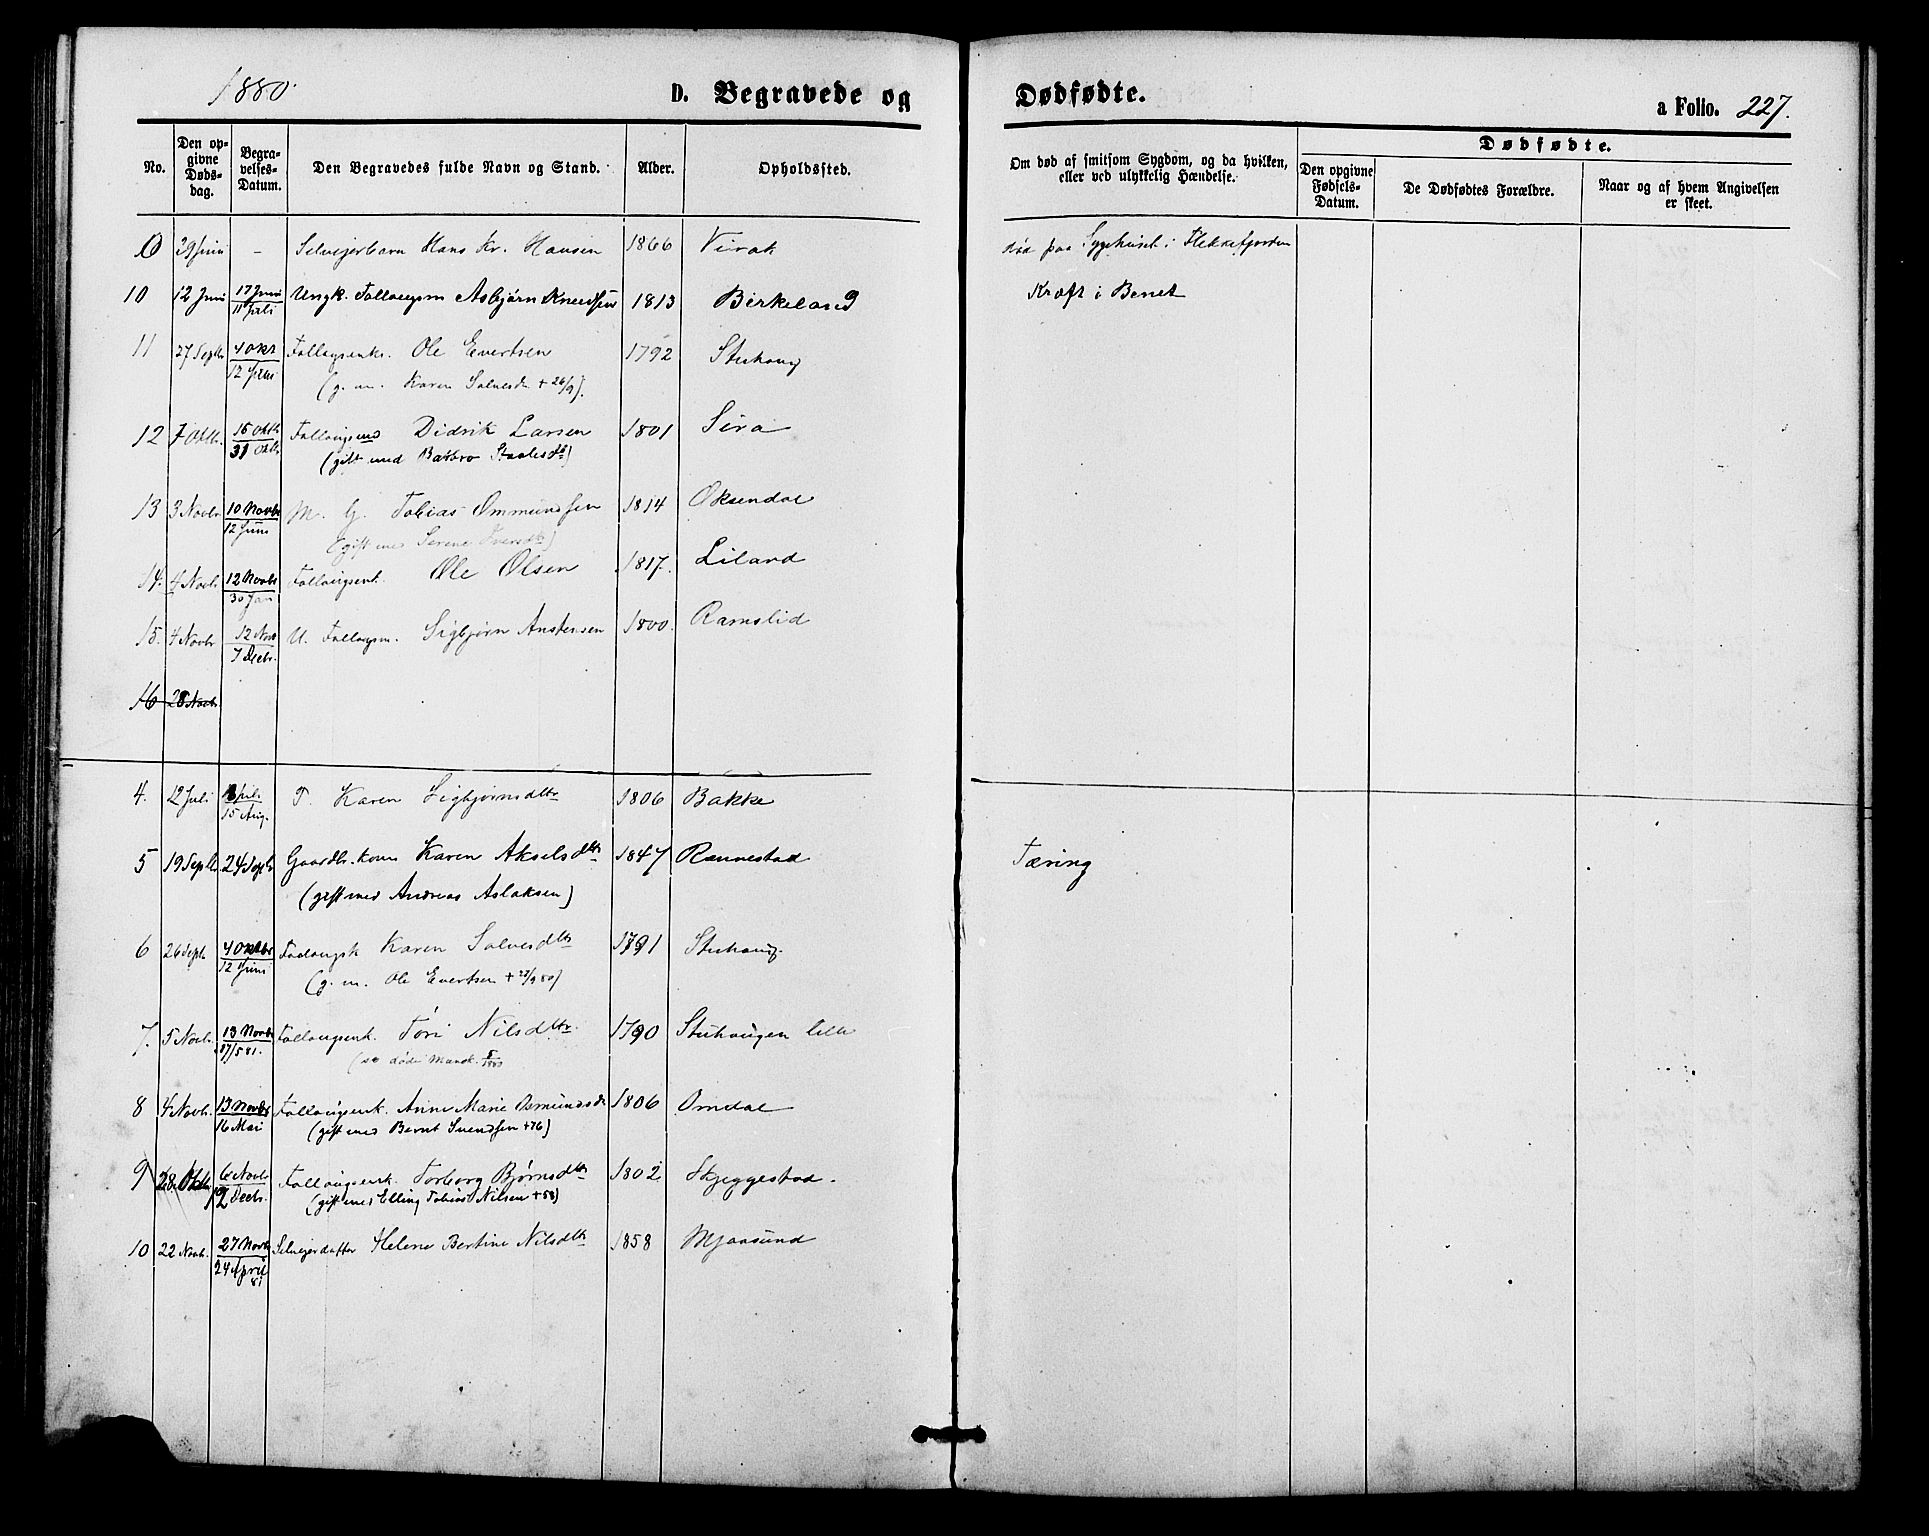 1880.
D. Begravede og
Dødfødte.
a Folio. 227.
No.
Den opgivne Dødsdag.
Begravelses-Datum.
Den Begravedes fulde Navn og Stand.
Alder.
Opholdssted.
Om død af smitsom Sygdom, og da hvilken, eller ved ulykkelig Hændelse.
Dødfødte.
Den opgivne Fødsels-Datum.
De Dødfødtes Forældre.
Naar og af hvem Angivelsen er skeet.
29 Juni - Selveierbarn Hans Kr. Hansen 1866 Virak død paa Sygehuset i Flekkefjorden
10 12 Juni 17 Juni Ungk. Follaugsm Asbjørn Knudsen 1813 Birkeland Kræft i Benet
11 Juli
11 27 Septb 4 Okt Follogsenk. Ole Evertsen 1792 Stuhaug
12 Juni (g. m. Karen Salvesd + 26/9).
12 7 Oktb. 15 Oktb Follaugsmd Didrik Larsen 1801 Sira
31 Oktb (gift med Barbro Staalesdtr)
13 3 Novbr 10 Novbr M. G. Tobias Ommundsen 1814 Øksendal
12 Juni (gift med Serene Iversdtr)
14. 4 Novb. 12 Novbr Follaugsenk. Ole Olsen 1817. Liland
30 Jan
15. 4 Novbr 12 Nov U. Follaugsm. Sigbjørn Anstensen 1800. Ramslid
7 Decbr.
16 28 Novb.
4. 12 Juli Juli T. Karen Sigbjørnsdtr 1806 Bakke
15 Aug.
5 19 Septb 24 Septb Gaardbr.kone Karen Akselsdtr 1847 Rønnestad Tæring
(gift med Andreas Aslaksen)
6 26 Septb 4 Oktbr Follaugsk Karen Salvesdtr 1791 Stuhaug.
12 Juni (g. m. Ole Evertsen + 27/9 80)
7. 5 Novb. 13 Novbr Follaugsenk. Tori Nilsdtr. 1790 Stuhaugen lille
27/5 81. (se døde Mandk.
8 4 Novb. 13 Novbr Follaugsenk. Anne Marie Osmundsdtr 1806 Omdal
16 Mai (gift med Bernt Svendsen +76)
9 28 Oktb 6 Novb Follaugsenk. Torborg Bjørnsdtr 1802 Skjeggestad.
12 Decbr. (gift med Elling Tobias Nilsen +58)
10 22 Novb. 27 Novb Selveierdatter Helene Bertine Nilsdtr 1858 Mjaasund
24 April 81